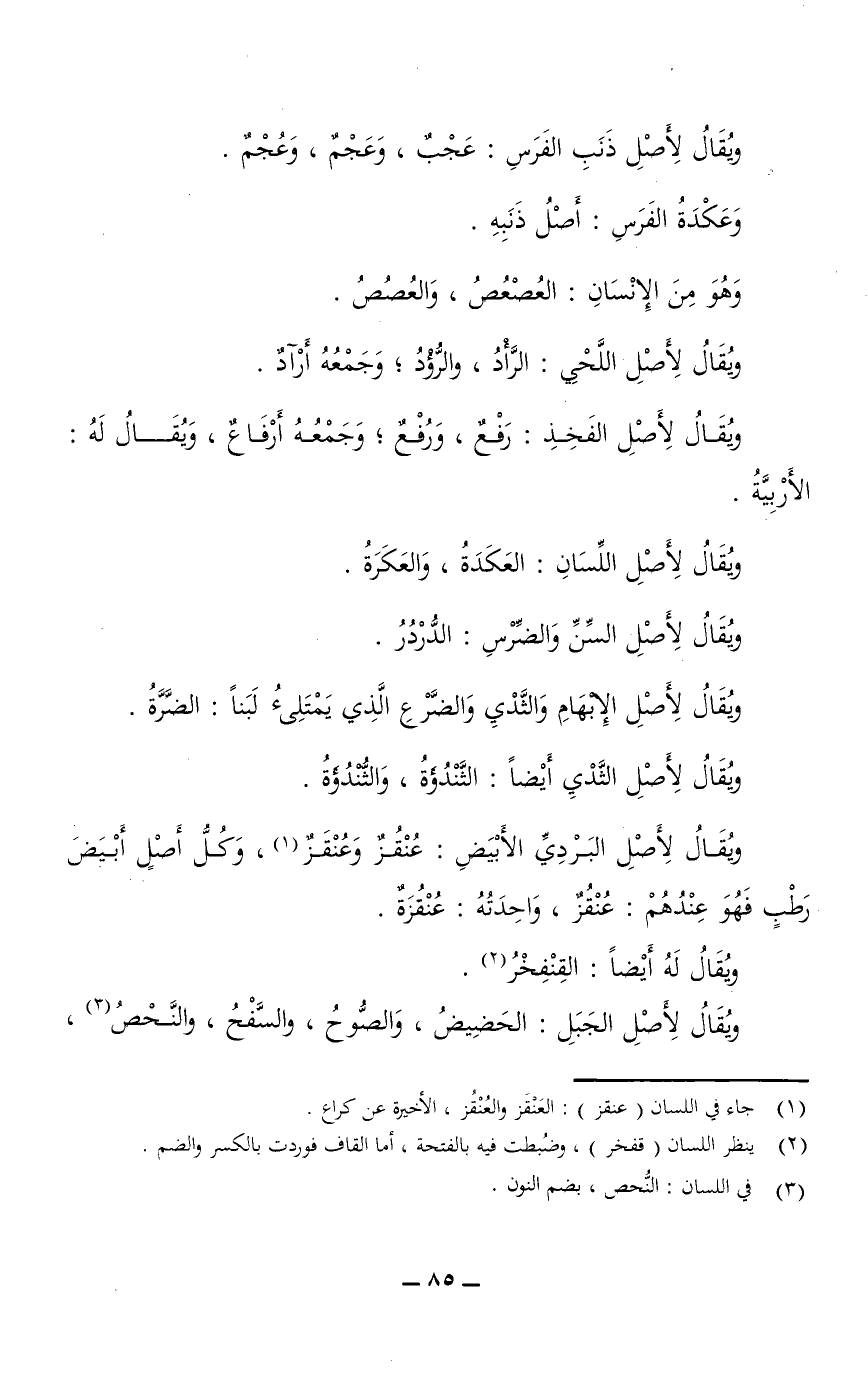 ويُقَالُ لِأَصْلِ ذَنَبِ الفَرَسِ : عَجْبٌ ، وَعَجْمٌ ، وَعُجْمٌ .
وَعَكْدَةُ الفَرَسِ : أَصْلُ ذَنَبِهِ .
وَهُوَ مِنَ الإِنْسَانِ : العُصْعُصُ ، وَالعُصُصُ .
ويُقَالُ لِأَصْلِ اللَّحْيِ : الرَّأْدُ ، والرُّؤْدُ ؛ وَجَمْعُهُ أَرْآدٌ .
ويُقَـالُ لِأَصْلِ الفَخِـذِ : رَفْـغٌ ، وَرُفْـغٌ ؛ وَجَمْعُـهُ أَرْفَـاغٌ ، وَيُقَـــالُ لَهُ :
الأُرْبِيَّةُ .
ويُقَالُ لِأَصْلِ اللِّسَانِ : العَكَدَةُ ، وَالعَكَرَةُ .
ويُقَالُ لِأَصْلِ السِّنِّ وَالضِّرْسِ : الدُّرْدُرُ .
ويُقَالُ لِأَصْلِ الإِبْهَامِ وَالثَّدْيِ وَالضَّرْعِ الَّذِي يَمْتَلِىءُ لَبَناً : الضَّرَّةُ .
ويُقَالُ لِأَصْلِ الثَّدْيِ أَيْضاً : الثَّنْدُوَةُ ، وَالثُّنْدُؤَةُ .
ويُقَـالُ لِأَصْلِ البَـرْدِيِّ الأَبْيَضِ : عُنْقُـزٌ وَعُنْقَـزٌ (١) ، وَكُـلُّ أَصْلٍ أَبْيَضَ
رَطْبٍ فَهُوَ عِنْدُهُمْ : عُنْقُزٌ ، وَاحِدَتُهُ : عُنْقُزَةٌ .
ويُقَالُ لَهُ أَيْضاً : القِنْفِخْرُ (٢) .
ويُقَالُ لِأَصْلِ الجَبَلِ : الحَضِيضُ ، وَالصُّوحُ ، والسَّفْحُ ، والنَّـحْصُ (٣) ،
(١) جاء في اللسان ( عنقز ) : العَنْقَز والعُنْقُز ، الأخيرة عن كراع .
(٢) ينظر اللسان ( قفخر ) ، وضُبطت فيه بالفتحة ، أما القاف فوردت بالكسر والضم .
(٣) في اللسان : النُّحص ، بضم النون .
ــ ٨٥ ــ